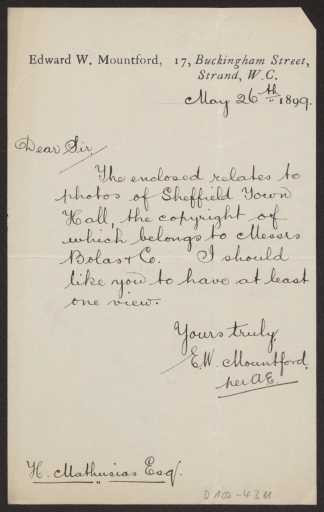 Edward W. Mountford, 17, Buckingham Street,
Strand, W.C.
May 26th 1899.
Dear Sir,
The enclosed relates to
photos of Sheffield Town
Hall, the copyright of
which belongs to Messrs
Bolas & Co. I should
like you to have at least
one view.
Yours truly,
E.W. Mountford.
per A.E.
H. Mathusias Esq.